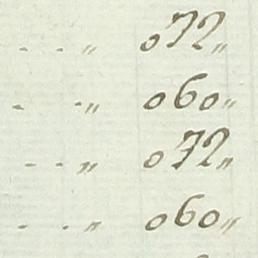 . . „ 072„
. . „ 060„
. . „ 072„
. . „ 060„